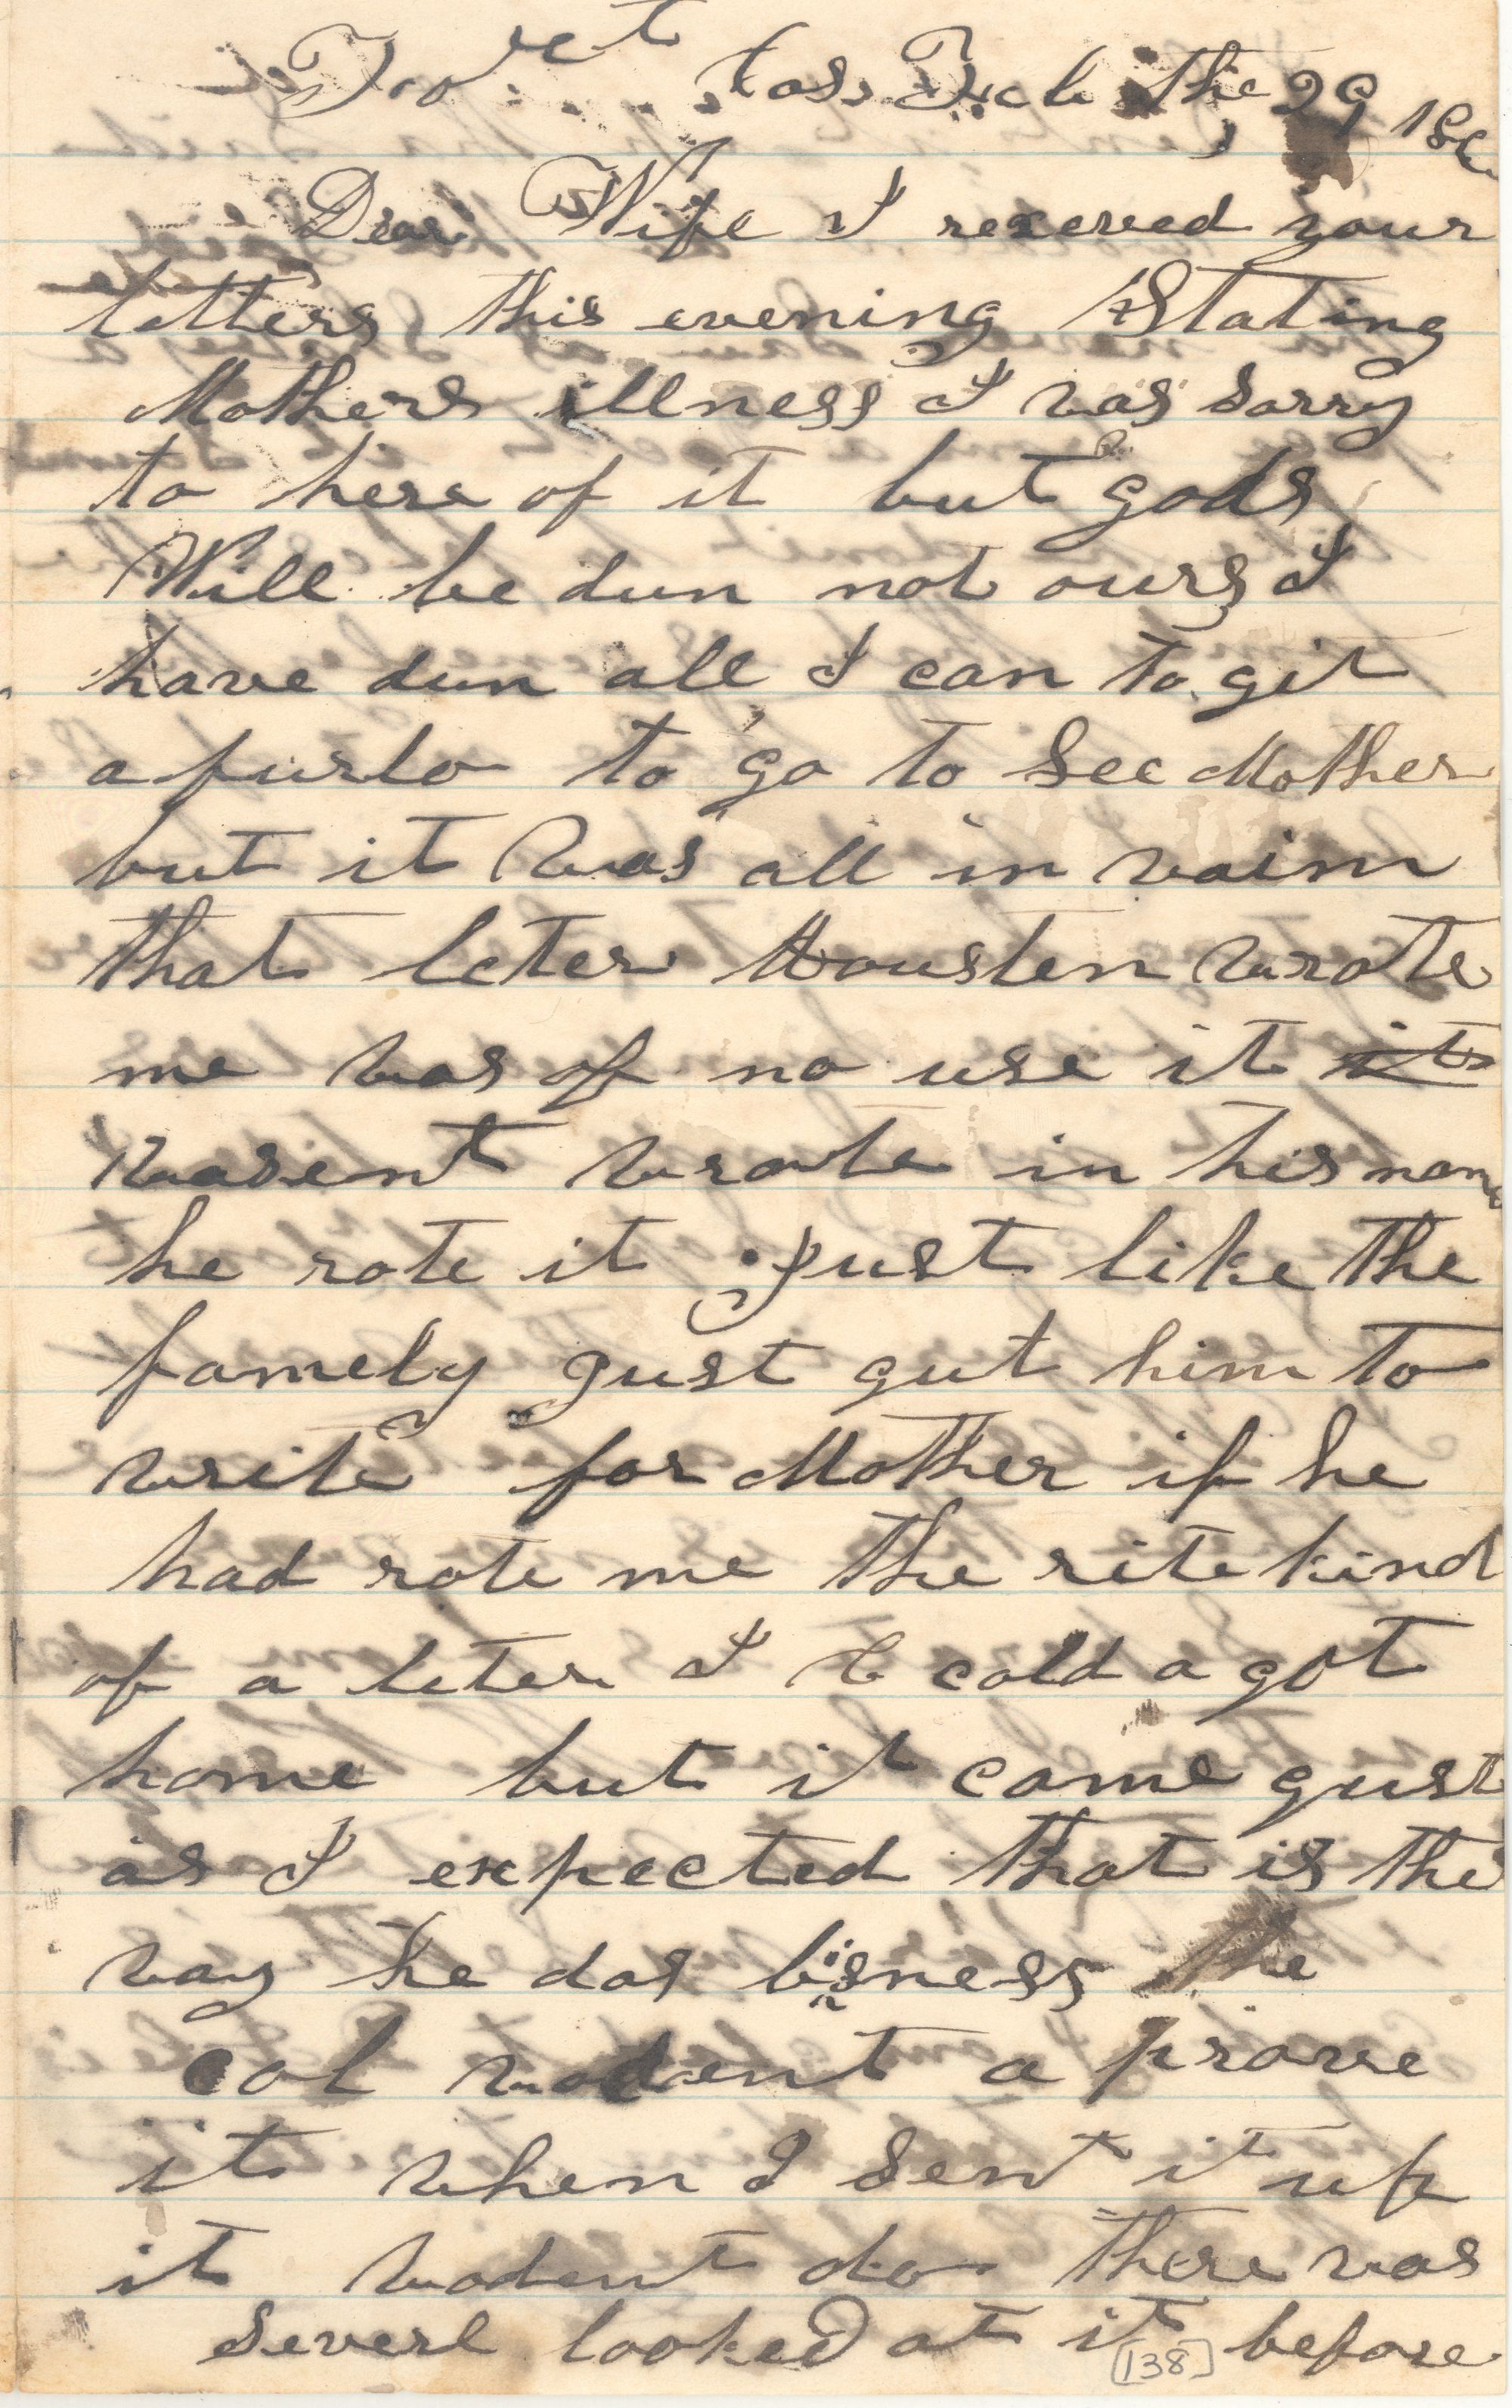 the 29 186
Dear Wife I reseved your
letters this evening Stating
Mothers illness I was sorry
to here of it but gods
Will be dun not ours I
have dun all I can to git
a furlo to go to See Mother
but it was all in vain
that leter Housten wrote
me was of no use it it
wasent wrote in his name
he rote it just like the
famely gust gut him to
write for Mother if he
had rote me the rite kind
of a leter I cold a got
home but it came gust
as I expected that is the
way he dos bisness the
col wodent a prove
it when I Sent it up
it wodent do there was
Severl looked at it before
[138]